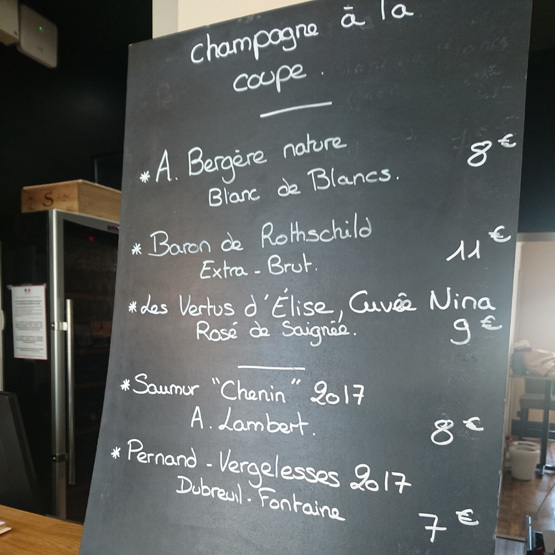 champagne à la
coupe.
* A. Bergère nature 8€
Blanc de Blancs.
* Baron de Rothschild 11€
Extra-Brut.
* Les Vertus d'Élise, Cuvée Nina
Rosé de Saignée. 9€
* Saumur "Chenin" 2017
A. Lambert. 8€
* Pernand-Vergelesses 2017
Dubreuil-Fontaine 7€
S